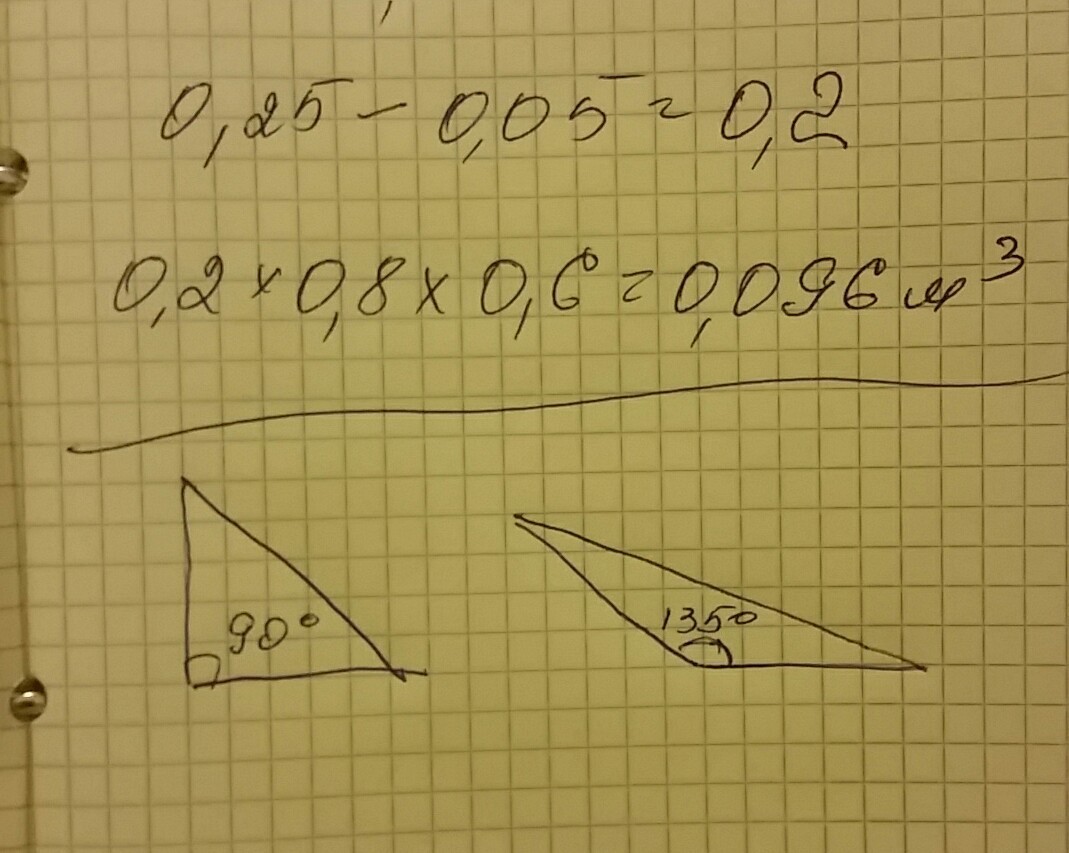 0,25 - 0,05 = 0,2
0,2 x 0,8 x 0,6 = 0,096 м³
90°
135°